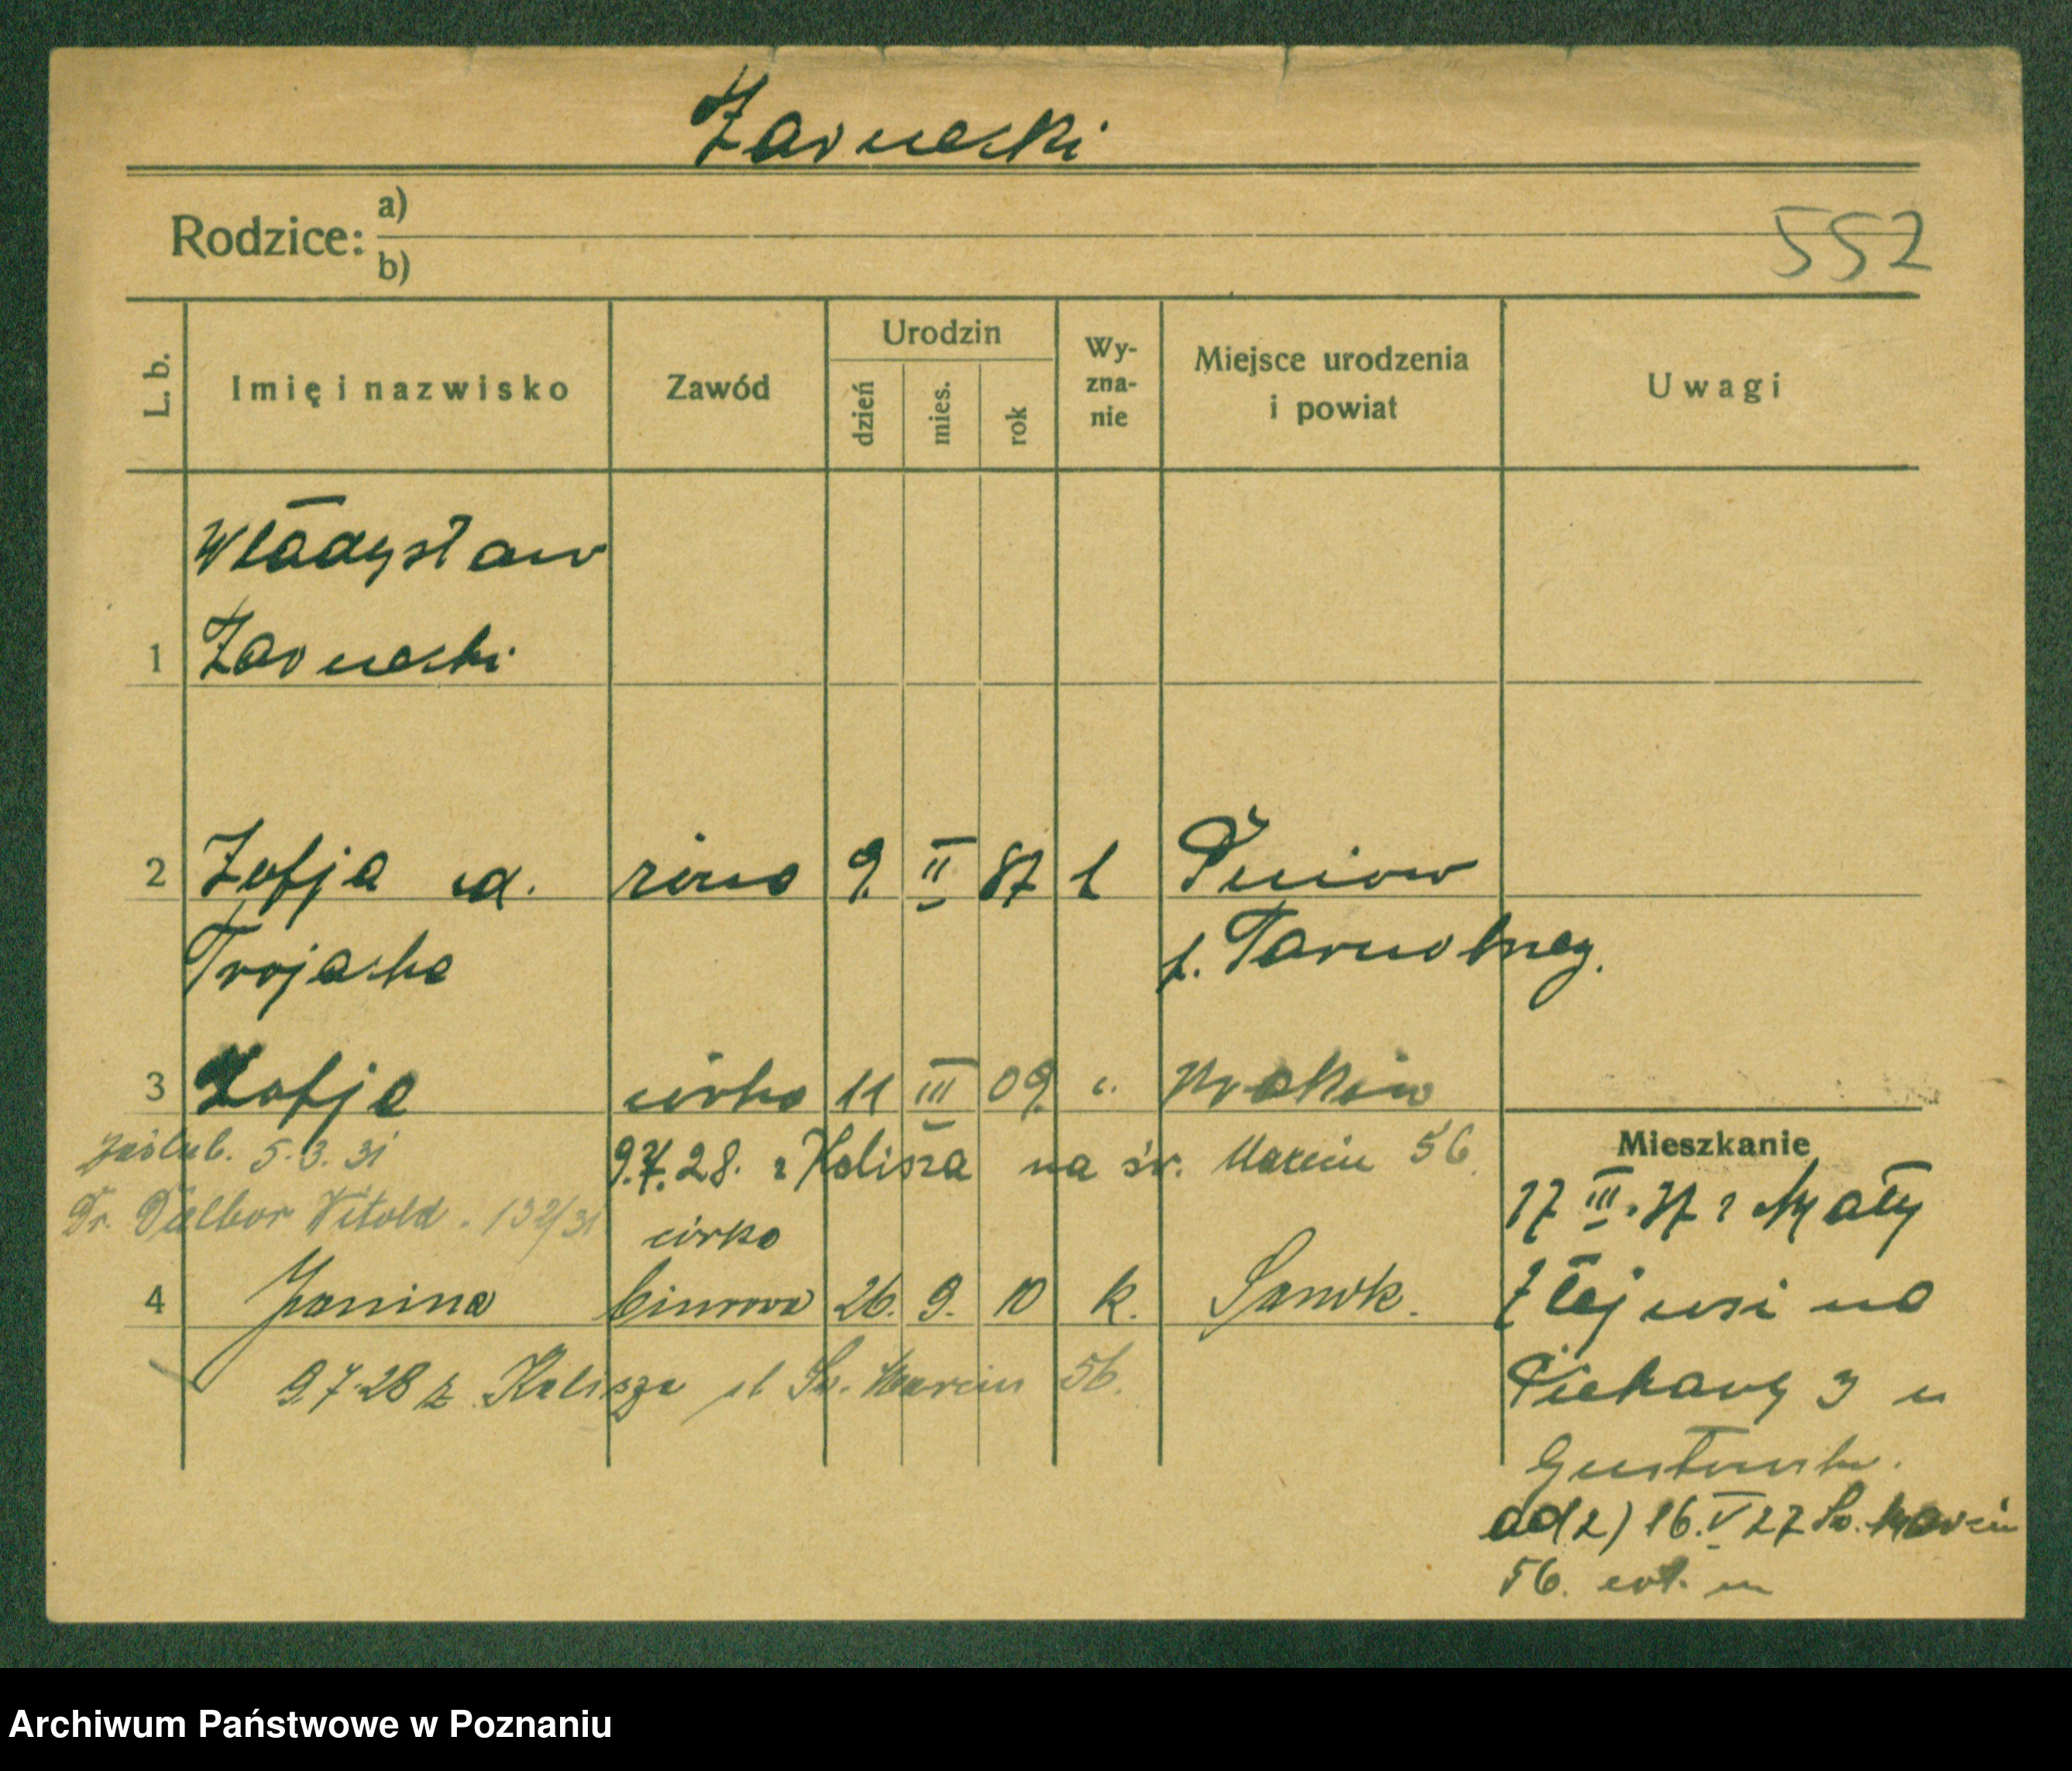 Żarnecki
Rodzice:
a)
b)
552
L. b.
Imię i nazwisko
Zawód
Urodzin
dzień
mies.
rok
Wy-
zna-
nie
Miejsce urodzenia
i powiat
Uwagi
Władysław
1 Żarnecki
2 Zofja żona 9. II 87 k Pniow
p. Tarnobrzeg.
3 Zofja córka 11 III 09. Kraków
Zaślub. 5.3.31
9.7.28. z Kalisza na św. Marcin 56.
Dr. Dalbor Witold. 132/31
córka
4 Janina biurowa 26. 9. 10 k. Sanok.
9.7.28 z Kalisza Św. Marcin 56.
Mieszkanie
17 III. z Mały
wsi na
Piekary 3 u
ad 2) 16. V 27 Św. Marcin
56.
Archiwum Państwowe w Poznaniu